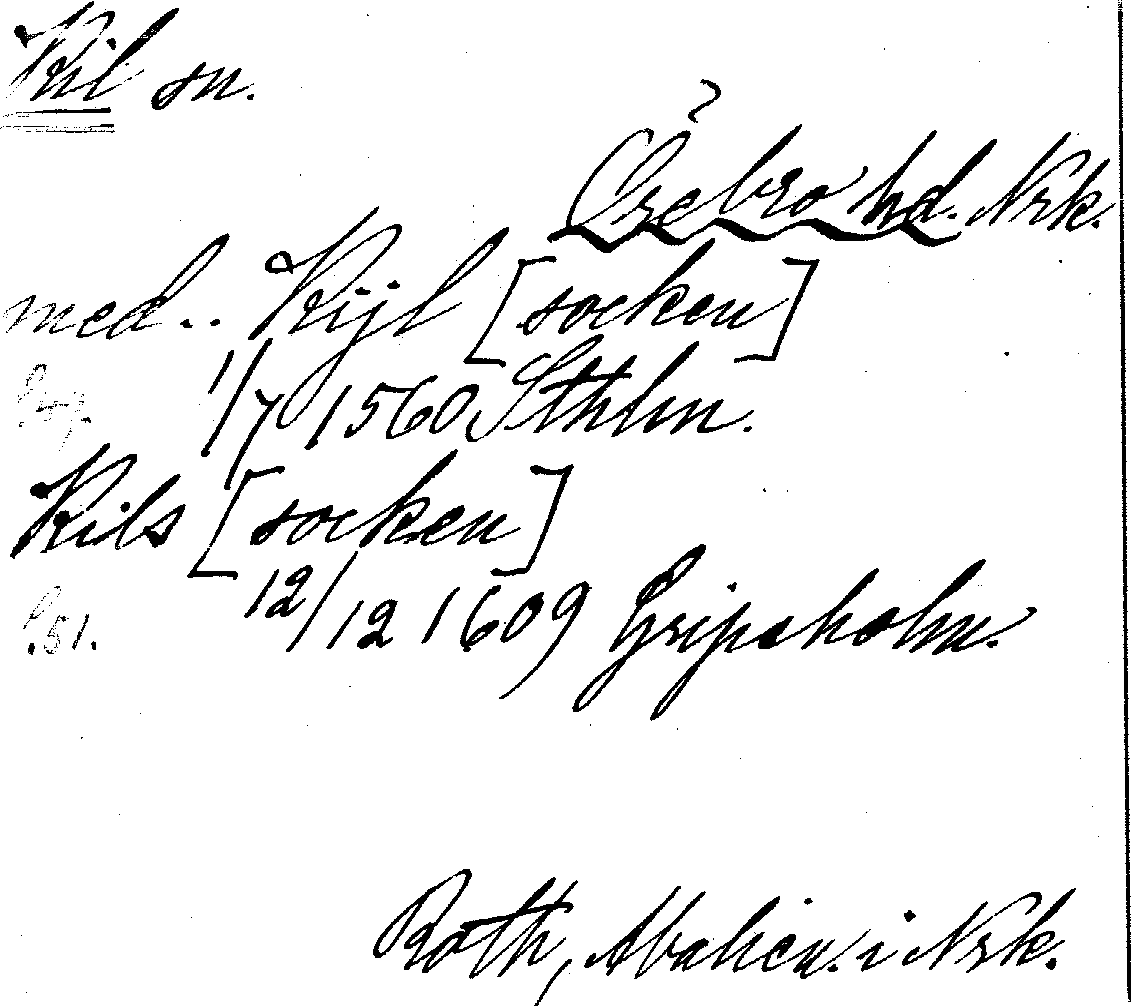 Kil sn.
?
Örebro hd. Nrk.
med.. Kijl [socken]
1/7 1560 Sthlm.
Kils [socken]
12/12 1609 Gripsholm.
s.51.
Roth, i Nrk.